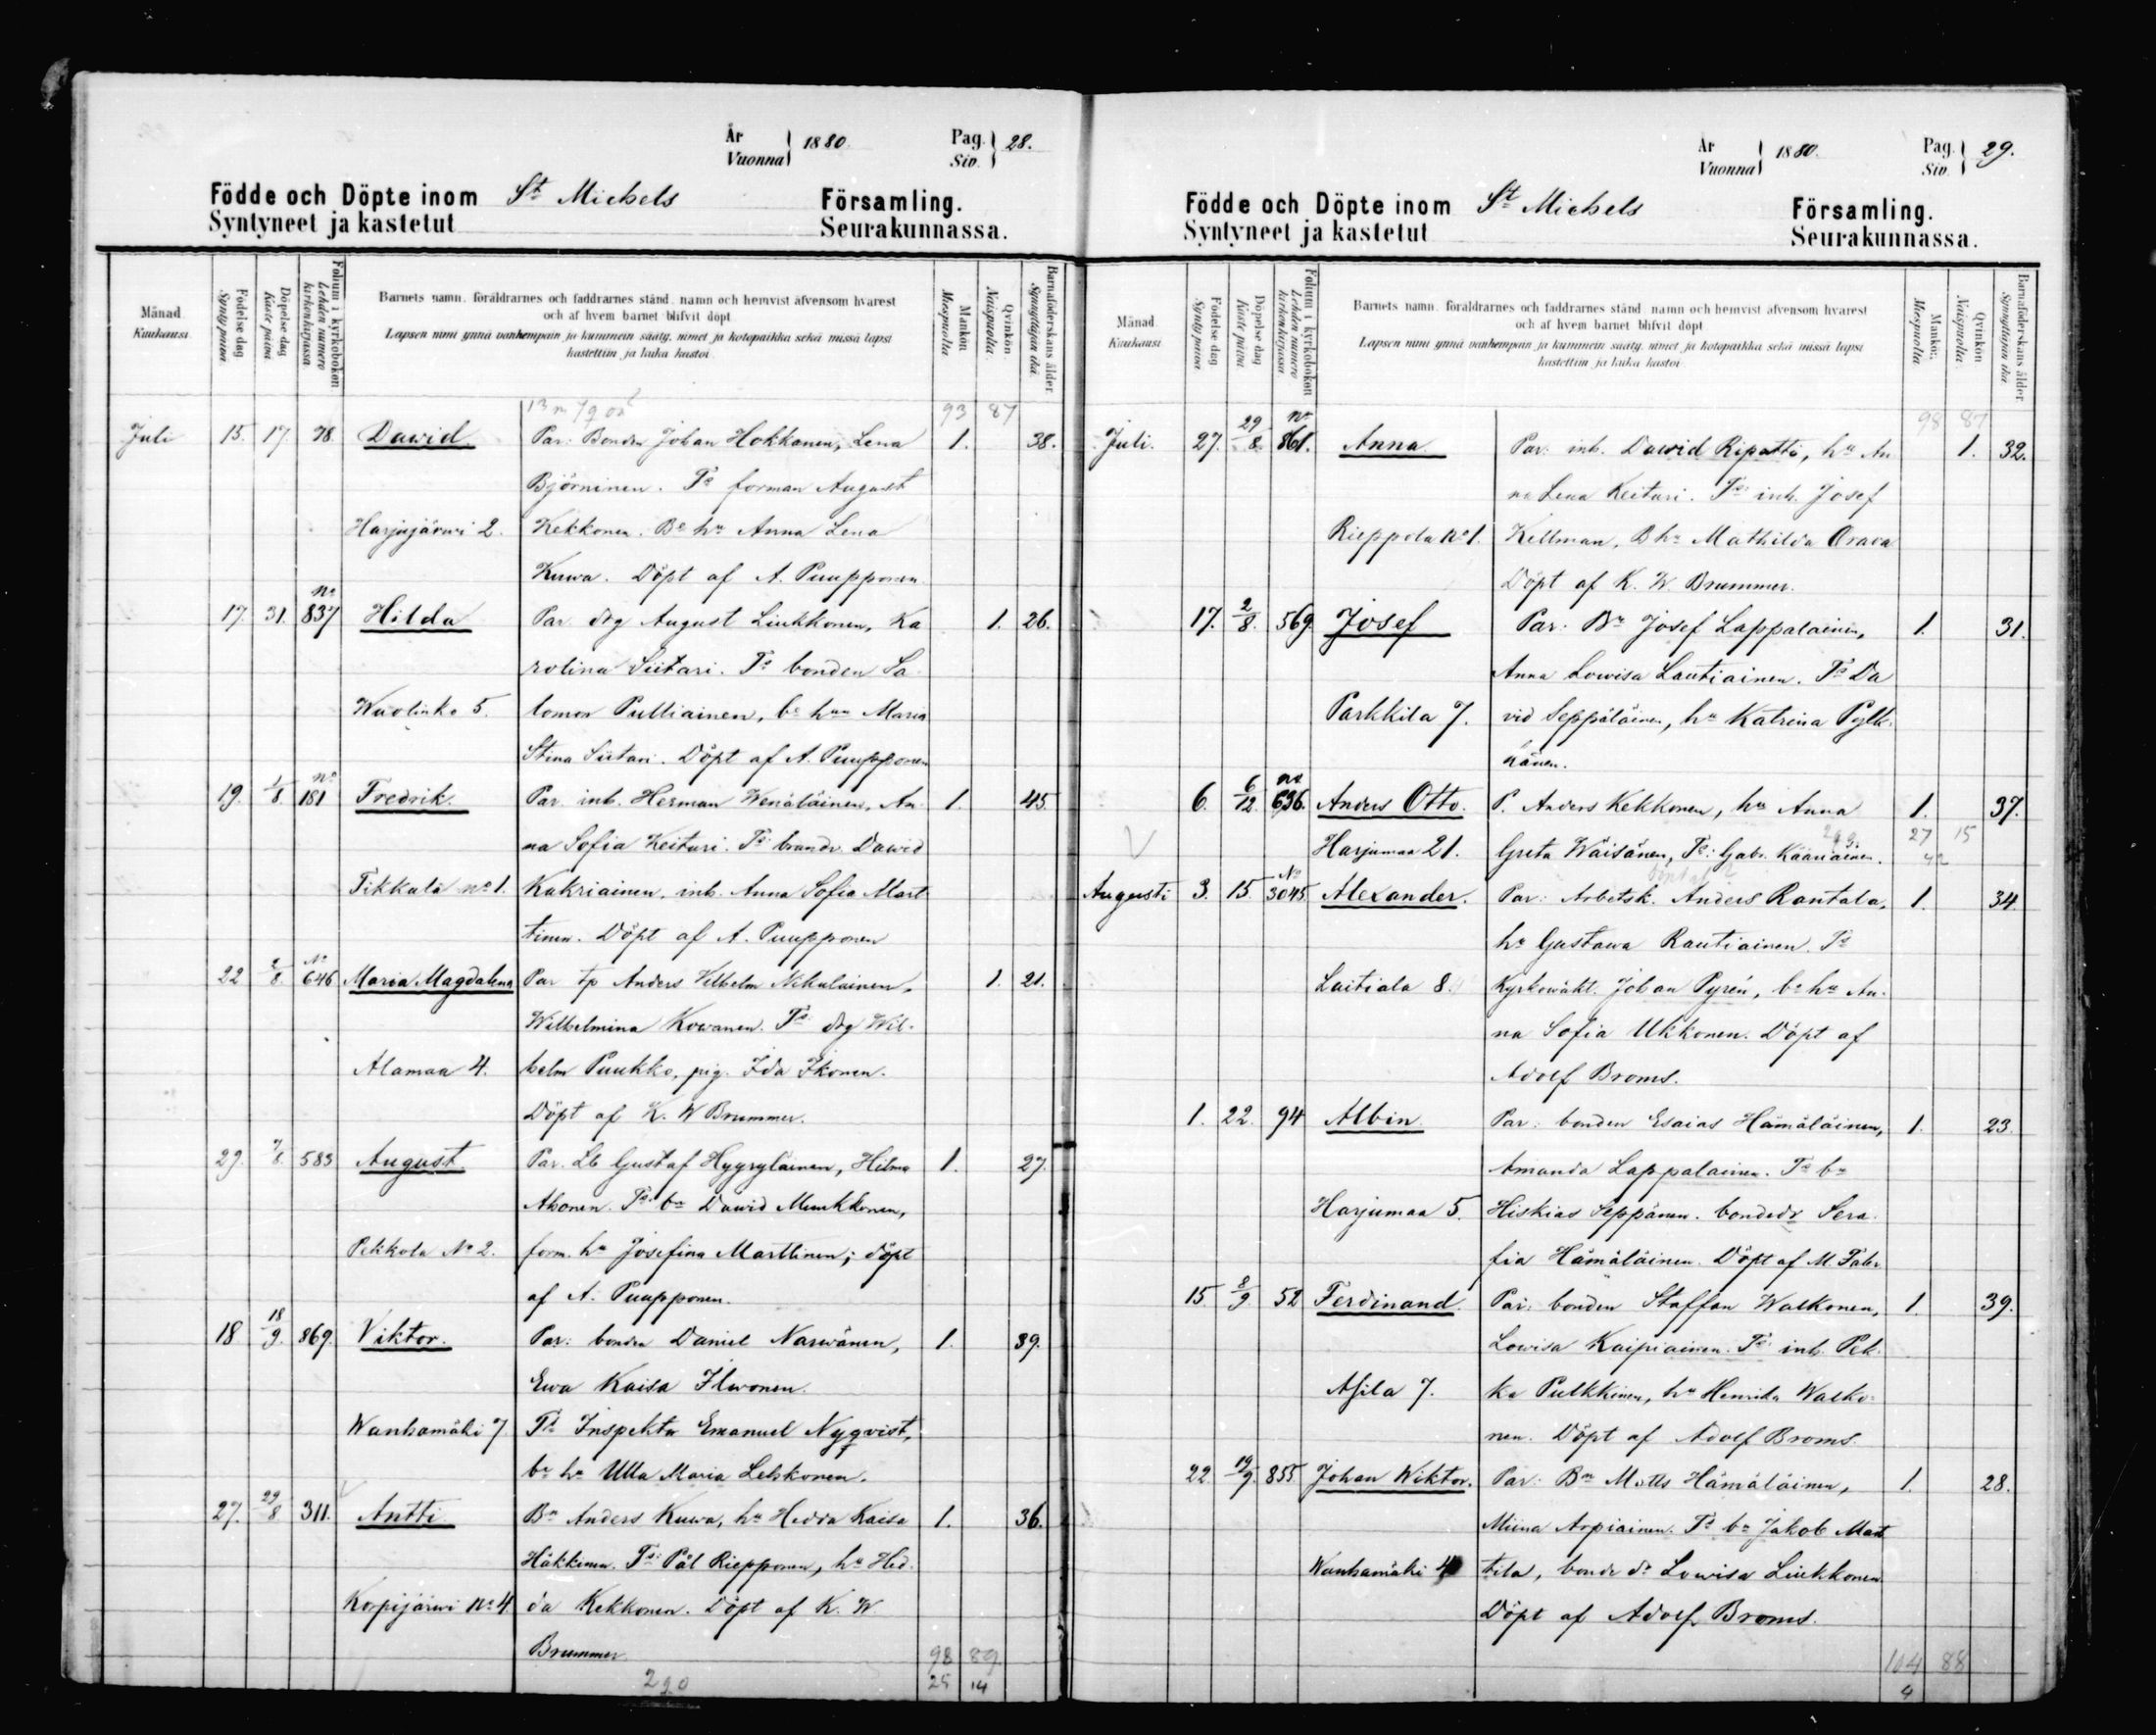 År 1880. Pag. 28.
Vuonna Siv.
Födde och Döpte inom St Michels Församling.
Syntyneet ja kastetut Seurakunnassa.
Månad Kuukausi
Födelse dag Synty päivä
Döpelse dag Kaste päivä
Folium i kyrkoboken Lehden numero kirkonkirjassa
Barnets namn. föräldrarnes och faddrarnes stånd. namn och hemvist äfvensom hvarest
och af hvem barnet blifvit döpt
Lapsen nimi ynnä vanhempain ja kummein sääty. nimet ja kotopaikka sekä missä lapsi
kastettiin ja kuka kastoi
Mankön Miespuolia
Qvinkön Naispuolia
Barnaföderskans ålder Synnyttäjän ikä
93 87
Juli 15. 17. 78. David. Par: Bonden Johan Hokkanen, Lena 1. 38.
Björninen. Ts forman August
Harjujärwi 2. Kekkonen. Be hu Anna Lena
Kuwa. Döpt af A. Puupponen.
17. 31. No 837 Hilda Par. drg August Liukkonen, Ka 1. 26.
rolina Siitari. Ts bonden Sa
Wuolinko 5. lomon Pulliainen, be hun Maria
Stina Siitari. Döpt af A. Puupponen
19. 1/8. No 181 Fredrik. Par. inh. Herman Wenäläinen, An 1. 45.
na Sofia Keituri. Ts brandv. Dawid
Tikkala No 1. Kukriainen, inh. Anna Sofia Mart
tinen. Döpt af A. Puupponen
22 2/8. No 646 Maria Magdalena Par tp Anders Vilhelm Nikulainen, 1. 21.
Wilhelmina Kowanen. Ts drg Wil-
Alamaa 4. helm Puukko, pig. Ida Ikonen.
Döpt af K. W Brummer.
29. 7/8. 583 August Par. Lb Gustaf Hyyryläinen, Hilma 1. 27.
Ahonen. Ts bn Dawid Muukkonen,
Pekkola No 2. form. hu Josefina Marttinen; döpt
af A. Puupponen.
18 18/9. 869. Viktor. Par: bonden Daniel Narwänen, 1. 39.
Ewa Kaisa Ilwonen.
Wanhamäki 7 Ts Inspektor Emanuel Nyqvist,
bn hu Ulla Maria Lehkonen.
27. 29/8 311. Antti Bn Anders Kuwa, hu Hedda Kaisa 1. 36.
Häkkinen. Ts: Pål Riepponen, hu Hed-
Korpijärwi No 4. da Kekkonen. Döpt af K. W
Brummer. 98 89
220 25 14
År 1880. Pag. 29.
Vuonna Siv.
Födde och Döpte inom St Michels Församling.
Syntyneet ja kastetut Seurakunnassa.
Månad Kuukausi
Födelse dag Synty päivä
Döpelse dag Kaste päivä
Folium i kyrkoboken Lehden numero kirkonkirjassa
Barnets namn. föräldrarnes och faddrarnes stånd namn och hemvist äfvensom hvarest
och af hvem barnet blifvit döpt
Lapsen nimi ynnä vanhempain ja kummein sääty. nimet ja kotopaikka sekä missä lapsi
kastettiin ja kuka kastoi
Mankön Miespuolia
Qvinkön Naispuolia
Barnaföderskans ålder Synnyttäjän ikä
98 87
Juli. 27. 29/8. No 861. Anna Par: inh. Dawid Ripatti, hu An 1. 32.
na Lena Keituri. Ts inh. Josef
Rieppola No 1. Kellman, B hu Mathilda Orava
Döpt af K. W. Brummer.
17. 2/8. 569 Josef Par: Bn Josef Lappalainen, 1. 31.
Anna Lowisa Lautiainen. Ts Da
Parkkila 7. vid Seppäläinen, hu Katrina Pylk-
känen.
6. 6/12. No 636. Anders Otto. P. Anders Kekkonen, hu Anna 1. 37.
Harjumaa 21. Greta Wäisänen, Ts: Gabr. Kääriäinen. 27 15
42
Augusti 3. 15. No 3045 Alexander. Par: Arbetsk. Anders Rantala, 1. 34.
hu Gustawa Rautiainen. Ts
Laitiala 8. Kyrkowäkt. Johan Pyrén, bn hu An-
na Sofia Ukkonen. Döpt af
Adolf Broms.
1. 22. 94 Albin Par: bonden Esaias Hämäläinen, 1. 23.
Amanda Lappalainen. Ts bn
Harjumaa 5. Hiskias Seppänen. bondedr Sera-
fia Hämäläinen. Döpt af M. Fabr
15. 8/9. 52 Ferdinand. Par: bonden Staffan Walkonen, 1. 39.
Lowisa Kaipiainen. Ts inh. Pek-
Asila 7. ka Pulkkinen, hu Henrika Walko-
nen. Döpt af Adolf Broms.
22. 19/9. 855 Johan Wiktor. Par: Bn Matts Hämäläinen, 1. 28.
Miina Arpiainen. Ts bn Jakob Mart
Wanhamäki 4 tila, bonde dr Lowisa Liukkonen
Döpt af Adolf Broms.
104 88
4